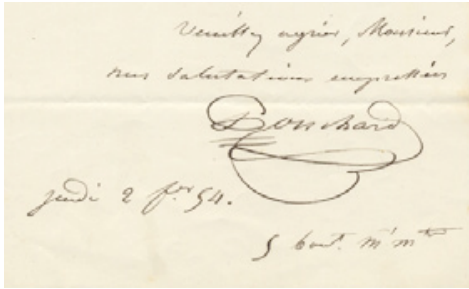 Veuillez agréer, Monsieur,
mes salutations empressées
Ponchard
jeudi 2 fer 54.
5 bout. m m